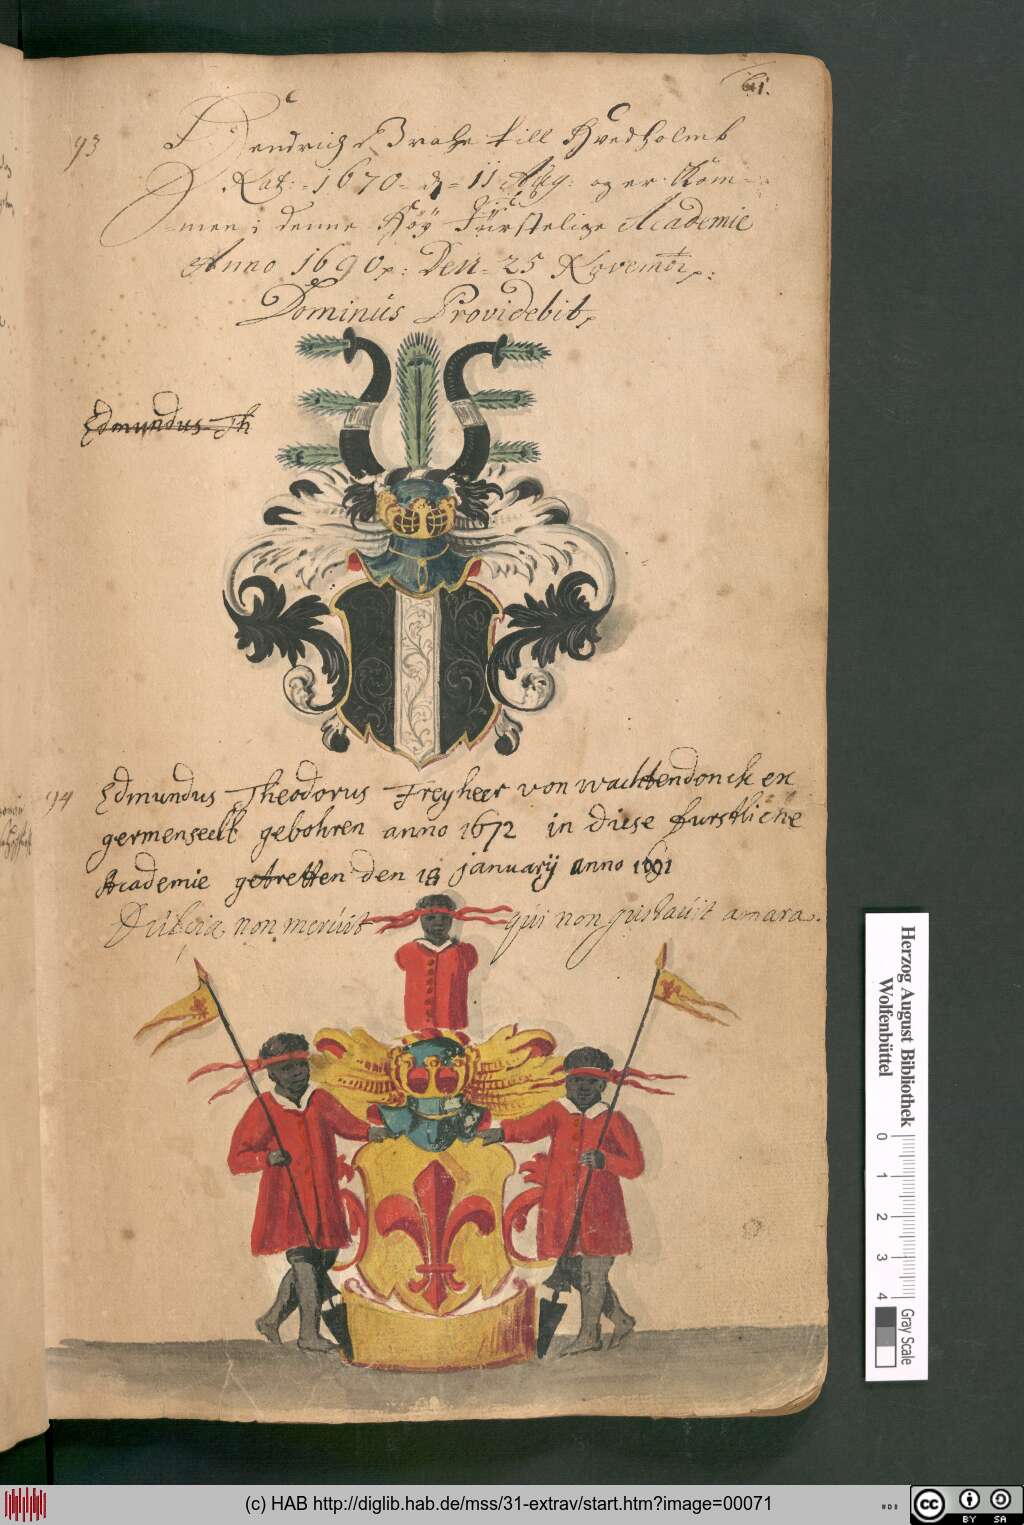 61.
93
Hendrich Brahe till Hvedholmb
Nat: 1670 d 11 Aug: og er Kom-
men i denne Høy Fürstelige Academie
Anno 1690: Den 25 Novembr:
Dominüs Providebit
Edmundus Th
94
Edmundus Theodorus Freyherr von wachtendonck en
germenseelt gebohren anno 1672 in diese furstliche
Academie getretten den 18 januarij anno 1691
Dülcia non merüit qüi non güstaüit amara.
Herzog August Bibliothek
Wolfenbüttel
0 1 2 3 4
Gray Scale
(c) HAB http://diglib.hab.de/mss/31-extrav/start.htm?image=00071
cc BY SA